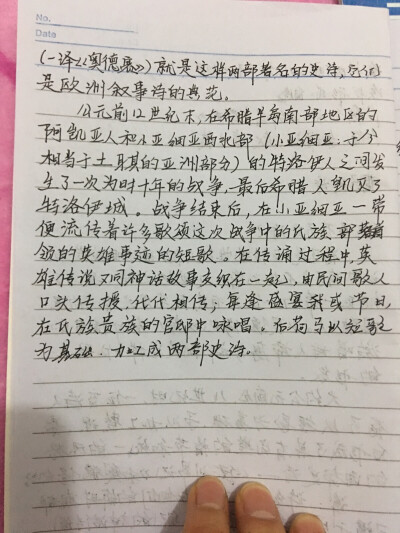 No.
Date
(一译《奥德赛》)就是这样两部著名的史诗,它们
是欧洲叙事诗的典范。
公元前12世纪末,在希腊半岛南部地区的
阿凯亚人和小亚细亚西北部(小亚细亚:于今
相当于土耳其的亚洲部分)的特洛伊人之间发
生了一次为时十年的战争,最后希腊人毁灭了
特洛伊城。战争结束后,在小亚细亚一带
便流传着许多歌颂这次战争中的氏族、部落首
领的英雄事迹的短歌。在传诵过程中,英
雄传说又同神话故事交织在一起,由民间歌人
口头传授,代代相传,每逢盛宴或节日,
在氏族贵族的宫邸中咏唱。后荷马以短歌
为基础,加工成两部史诗。